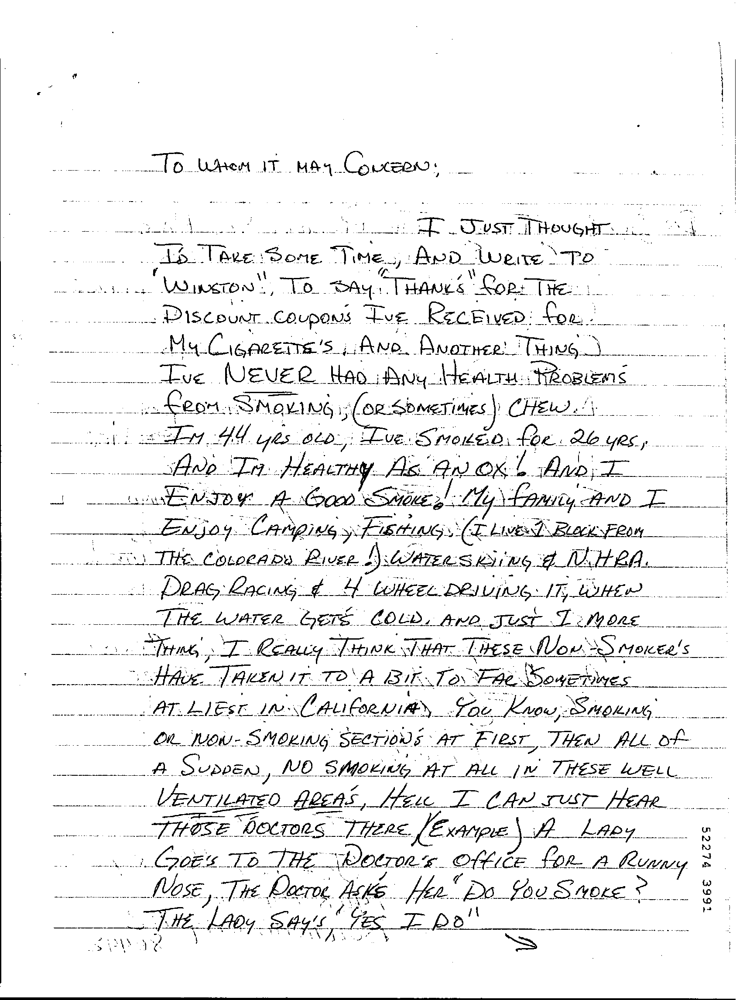 TO WHOM IT MAY CONCERN;
I JUST THOUGHT
TO TAKE SOME TIME, AND WRITE TO
"WINSTON", TO SAY "THANK'S" FOR THE
DISCOUNT COUPON'S IVE RECEIVED FOR
MY CIGARETTE'S, AND ANOTHER THING
IVE NEVER HAD ANY HEALTH PROBLEMS
FROM SMOKING, (OR SOMETIMES) CHEW.
IM 44 YRS OLD, IVE SMOKED FOR 26 YRS,
AND IM HEALTHY AS AN OX! AND I
ENJOY A GOOD SMOKE! MY FAMILY AND I
ENJOY CAMPING, FISHING, (I LIVE 1 BLOCK FROM
THE COLORADO RIVER!) WATERSKIING & N.H.R.A.
DRAG RACING & 4 WHEEL DRIVING IT, WHEN
THE WATER GETS COLD. AND JUST 1 MORE
THING, I REALLY THINK THAT THESE NON-SMOKER'S
HAVE TAKEN IT TO A BIT TO FAR SOMETIMES
AT LIEST IN CALIFORNIA, YOU KNOW, SMOKING
OR NON-SMOKING SECTION'S AT FIRST, THEN ALL OF
A SUDDEN, NO SMOKING AT ALL IN THESE WELL
VENTILATED AREA'S, HELL I CAN JUST HEAR
THOSE DOCTORS THERE, (EXAMPLE) A LADY
GOE'S TO THE DOCTOR'S OFFICE FOR A RUNNY
NOSE, THE DOCTOR ASKS HER "DO YOU SMOKE?
THE LADY SAY'S, "YES I DO"
52274 3991